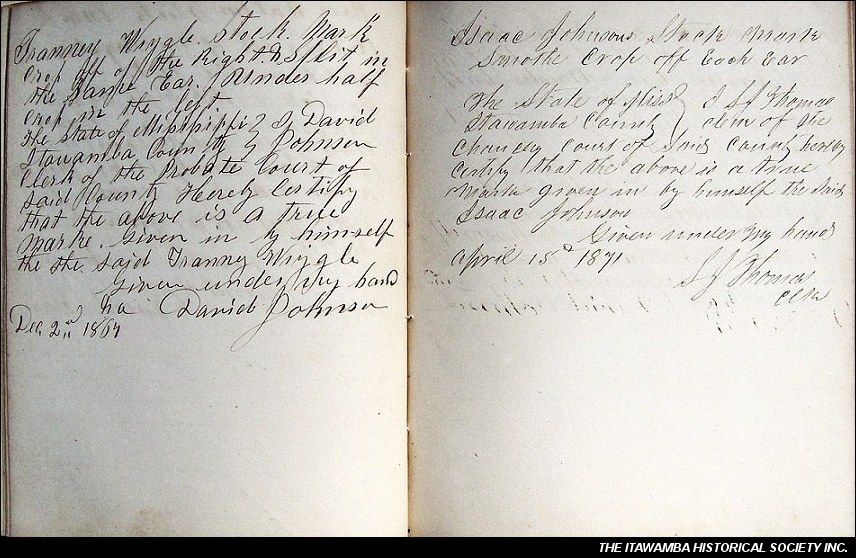 Tranney Wrygle Stock Mark
Crop off of the Right & Split in
the Same Ear. Under half
Crop in the left
The State of Mississippi } I David
Itawamba County } Johnson
Clerk of the Probate Court of
Said County Hereby Certify
that the above is a true
Marke. Given in by himself
the the Said Tranney Wrygle
Given under my hand
David Johnson
Dec 2nd
Isaac Johnsons Stock Mark
Smooth Crop off Each Ear
The State of Miss } I S J Thomas
Itawamba County } clerk of the
Chancery Court of Said County hereby
certify that the above is a true
Mark given in by himself the Said
Isaac Johnson
Given under my hand
April 15th 1871
S J Thomas
Clk
THE ITAWAMBA HISTORICAL SOCIETY INC.